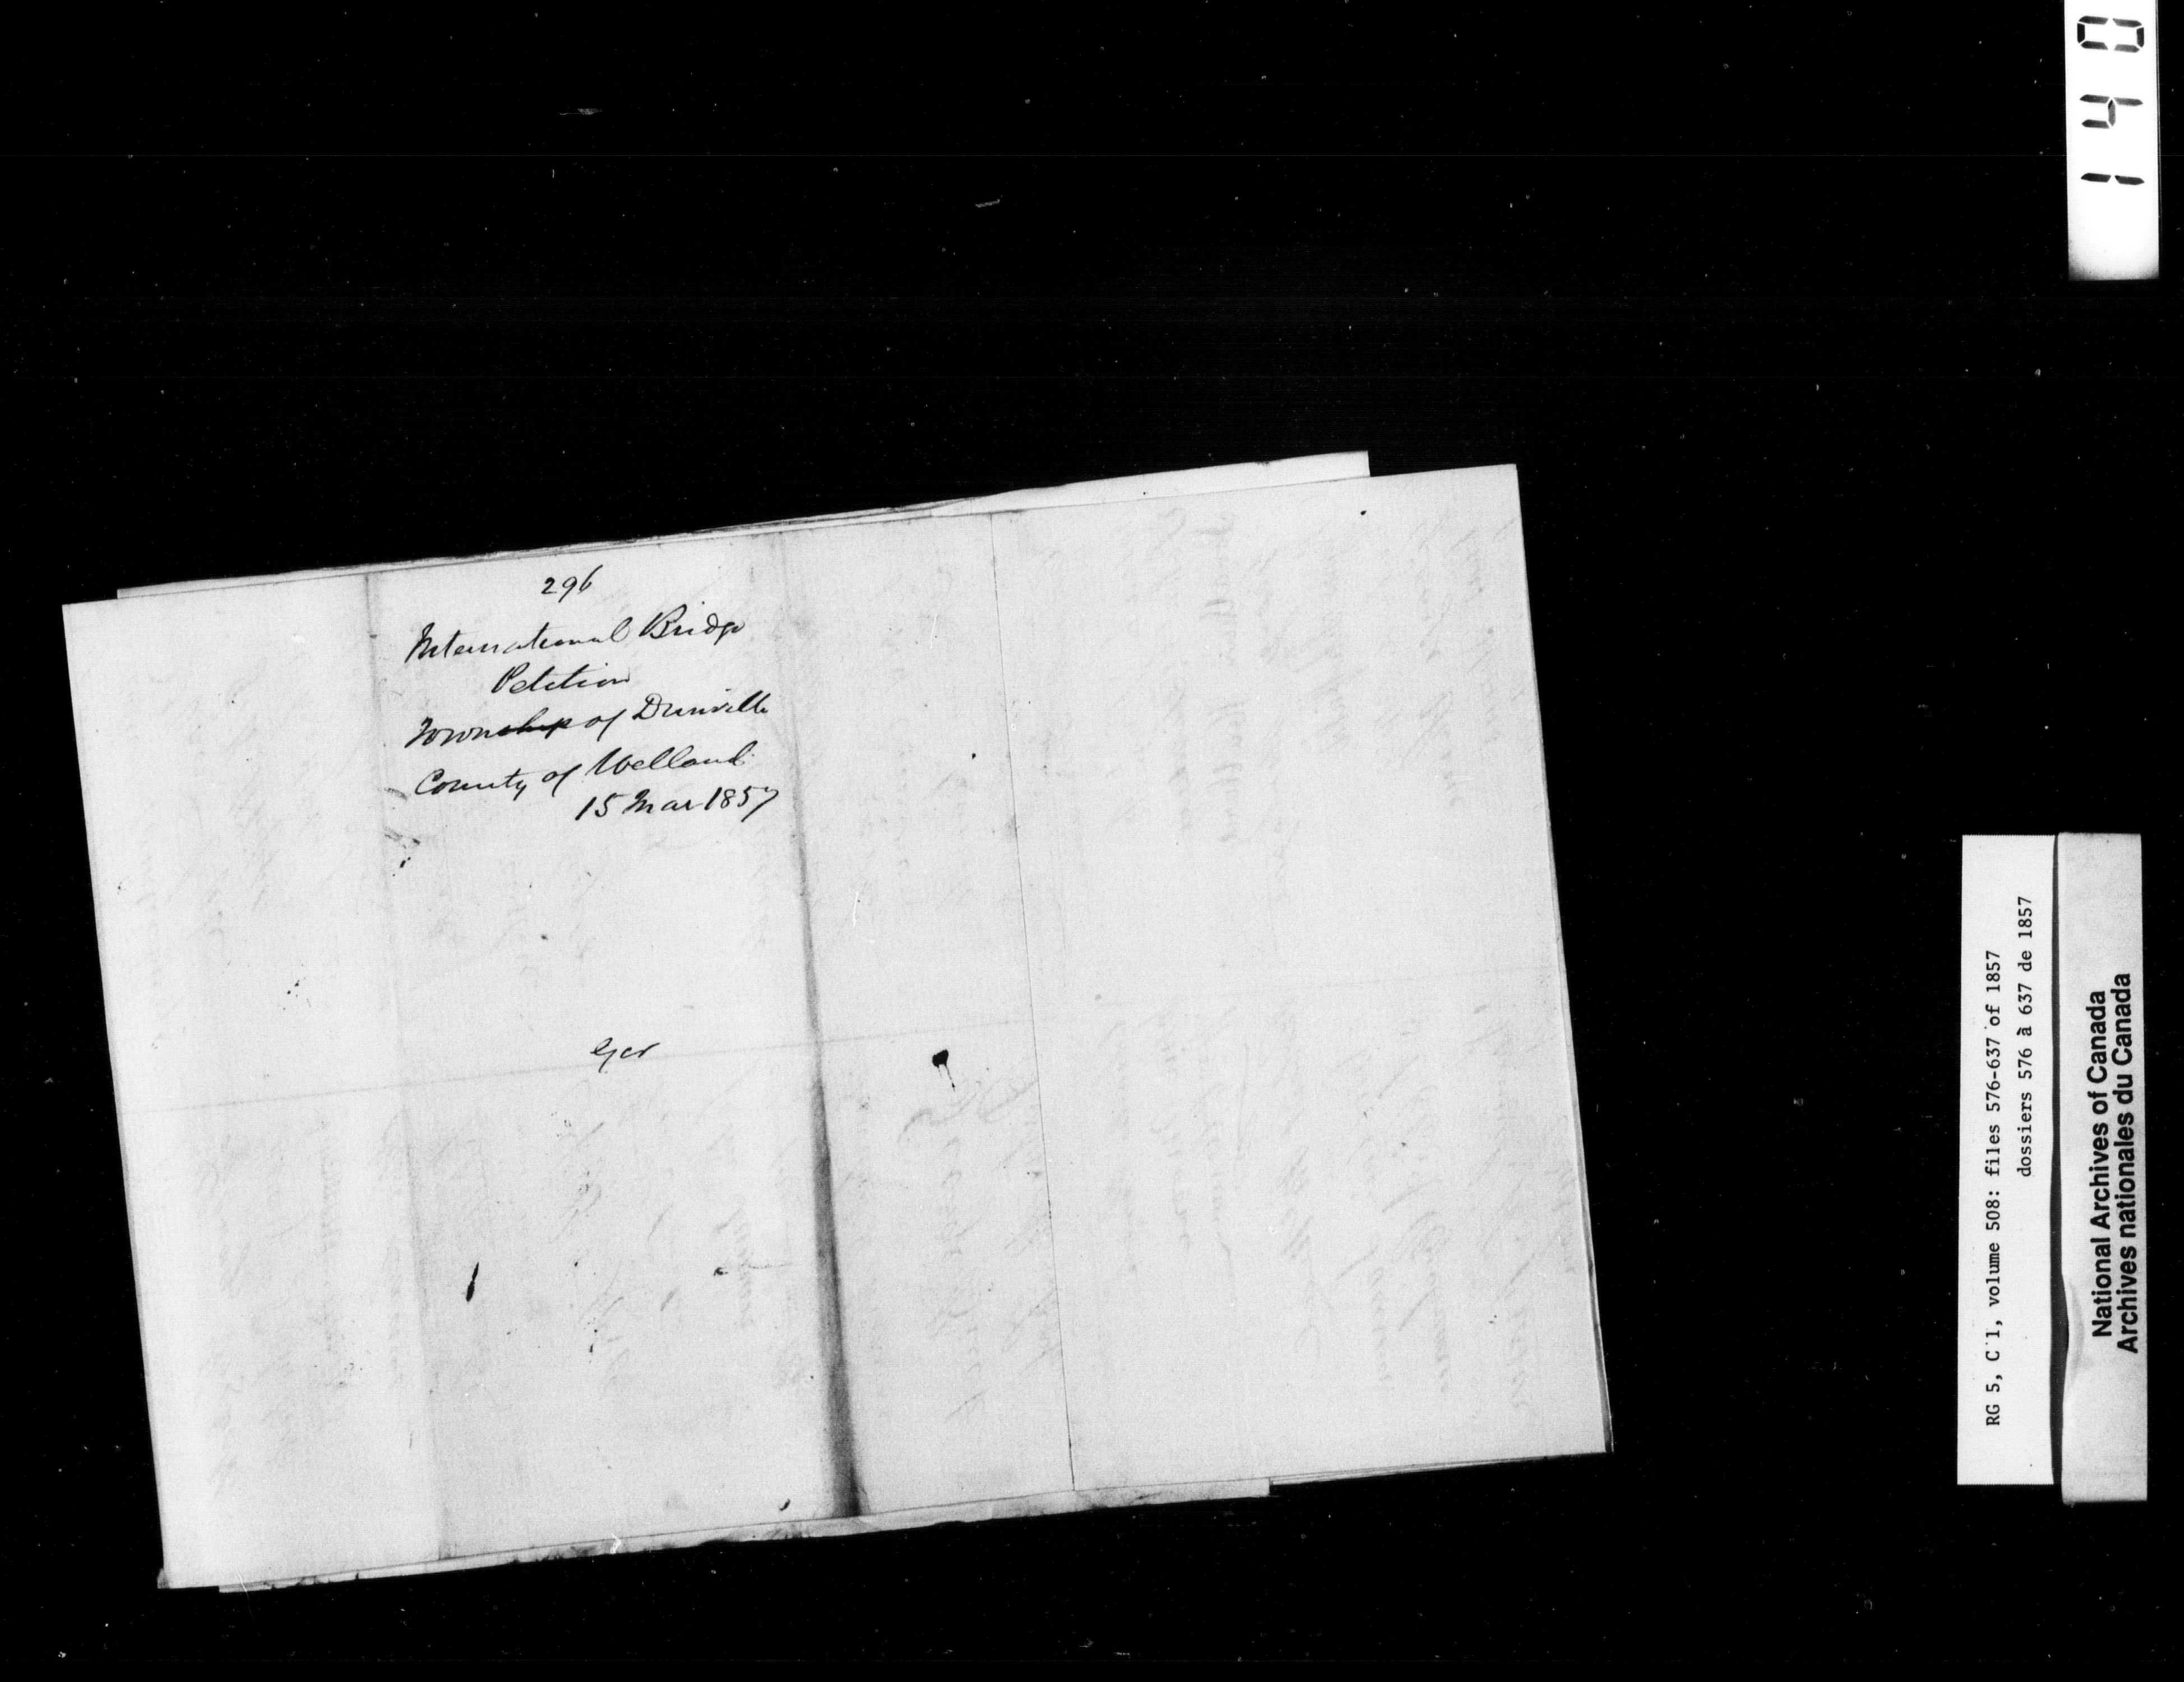 296
International Bridge
Petition
Township of Dunville
County of Welland
15 Mar 1857
1140
RG 5, C 1, volume 508: files 576-637 of 1857
dossiers 576 à 637 de 1857
National Archives of Canada
Archives nationales du Canada